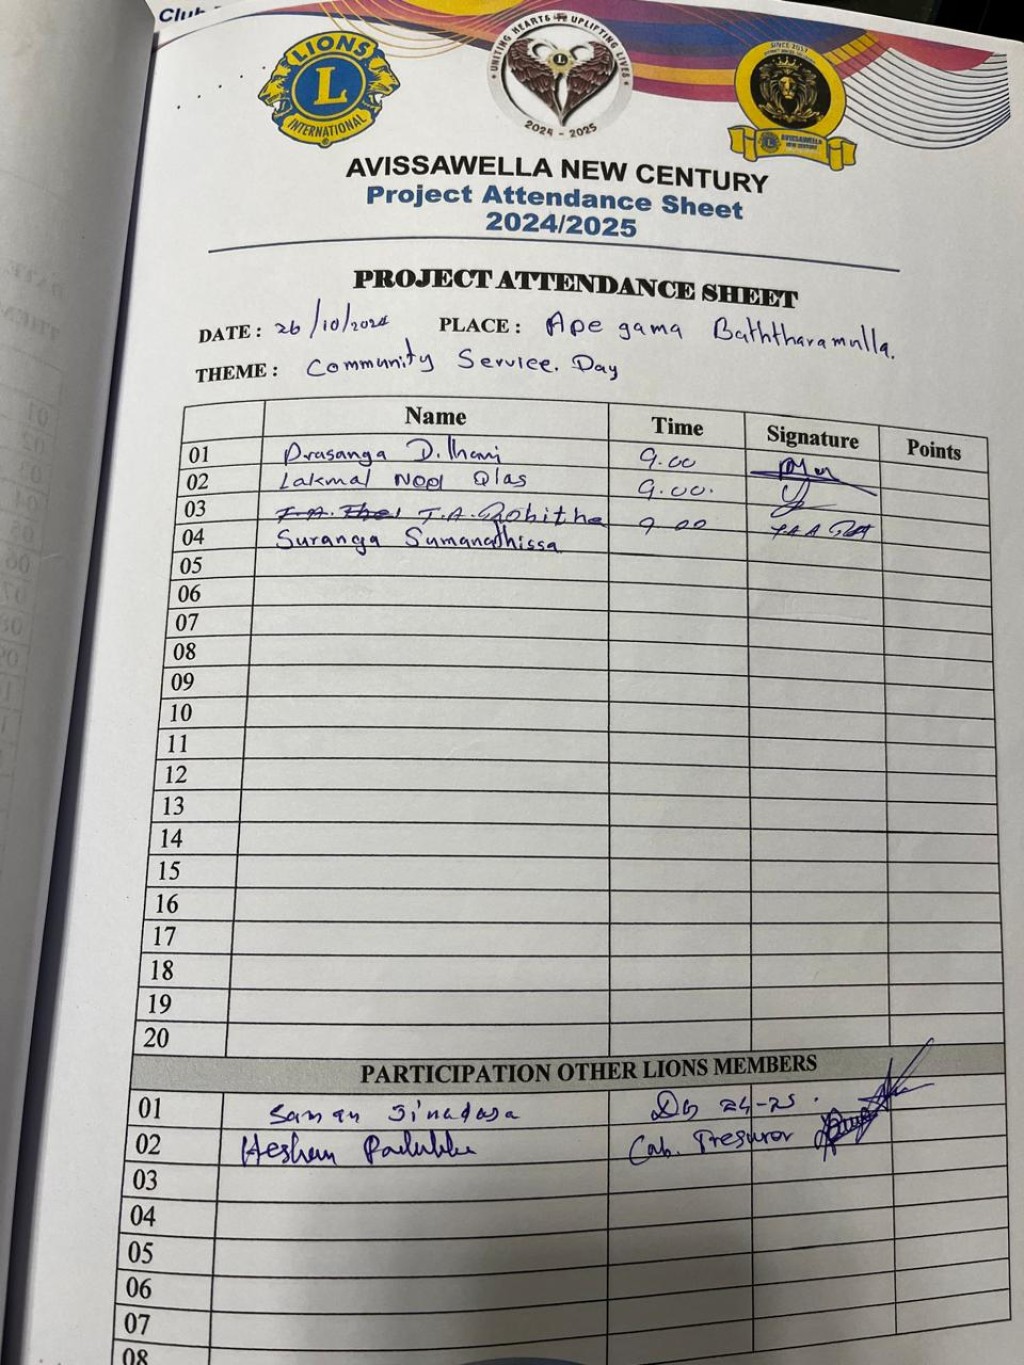 Club
LIONS
L
INTERNATIONAL
UNITING HEARTS UPLIFTING LIVES
L
2024 - 2025
SINCE 2017
AVISSAWELLA
NEW CENTURY
AVISSAWELLA NEW CENTURY
Project Attendance Sheet
2024/2025
PROJECT ATTENDANCE SHEET
DATE : 26/10/2024 PLACE : Ape gama Baththaramulla.
THEME : Community Service. Day
Name Time Signature Points
01 Prasanga Dilhani 9.00
02 Lakmal Noel Dias 9.00.
03 T.A. T.A. Rohitha 9 00
04 Suranga Sumanadhissa
05
06
07
08
09
10
11
12
13
14
15
16
17
18
19
20
PARTICIPATION OTHER LIONS MEMBERS
01 Saman Jinadasa DG 24-25.
02 Heshan Cab. Tresuror
03
04
05
06
07
08